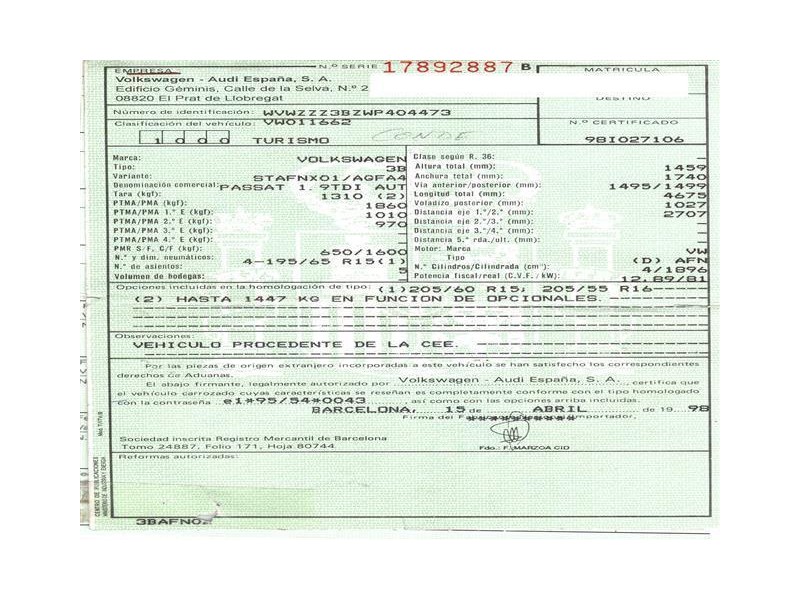 EMPRESA
N.º SERIE 17892887 B
MATRICULA
Volkswagen - Audi España, S. A.
Edificio Géminis, Calle de la Selva, N.º 2
08820 El Prat de Llobregat
DESTINO
Número de identificación: WVWZZZ3BZWP404473
Clasificación del vehículo: VW011662
N.º CERTIFICADO
1 0 0 0 TURISMO CONDE
98I027106
Marca: VOLKSWAGEN
Tipo: 3B
Variante: STAFNX01/AGFA4
Denominación comercial: PASSAT 1.9TDI AUT
Tara (kgf): 1310 (2)
PTMA/PMA (kgf): 1860
PTMA/PMA 1.º E (kgf): 1010
PTMA/PMA 2.º E (kgf): 970
PTMA/PMA 3.º E (kgf):
PTMA/PMA 4.º E (kgf):
PMR S/F, C/F (kgf): 650/1600
N.º y dim. neumáticos: 4-195/65 R15(1)
N.º de asientos: 5
Volumen de bodegas: -
Clase según R. 36: -
Altura total (mm): 1459
Anchura total (mm): 1740
Vía anterior/posterior (mm): 1495/1499
Longitud total (mm): 4675
Voladizo posterior (mm): 1027
Distancia eje 1.º/2.º (mm): 2707
Distancia eje 2.º/3.º (mm): -
Distancia eje 3.º/4.º (mm): -
Distancia 5.º rda./ult. (mm): -
Motor: Marca VW
Tipo (D) AFN
N.º Cilindros/Cilindrada (cm³): 4/1896
Potencia fiscal/real (C.V.F./kW): 12.89/81
Opciones incluidas en la homologación de tipo: (1)205/60 R15; 205/55 R16
(2) HASTA 1447 KG EN FUNCION DE OPCIONALES.
Observaciones:
VEHICULO PROCEDENTE DE LA CEE.
Por las piezas de origen extranjero incorporadas a este vehículo se han satisfecho los correspondientes
derechos de Aduanas.
El abajo firmante, legalmente autorizado por Volkswagen - Audi España, S. A., certifica que
el vehículo carrozado cuyas características se reseñan es completamente conforme con el tipo homologado
con la contraseña e1*95/54*0043, así como con las opciones arriba incluidas.
BARCELONA, 15 de ABRIL de 19 98
Firma del
importador,
Fdo.: F. MARZOA CID
Sociedad inscrita Registro Mercantil de Barcelona
Tomo 24887, Folio 171, Hoja 80744
Reformas autorizadas:
CENTRO DE PUBLICACIONES
3BAFN02